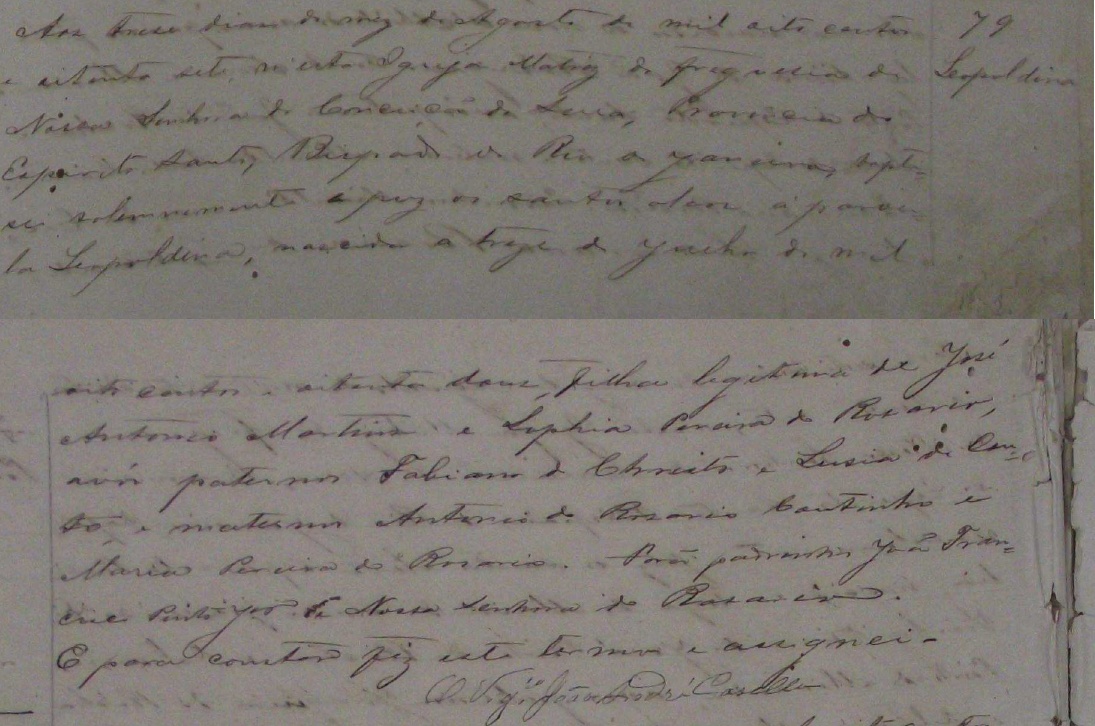 Aos treze dias do mez de Agosto de mil oito centos
e oitenta sete, n'esta Igreja Matriz da freguesia de
Nossa Senhora da Conceição da Serra, Provincia do
Espirito Santo, Bispado do Rio de Janeiro, baptī-
sei solemnemente e puz os santos oleos a parvu-
la Leopoldina, nascida a treze de Junho de mil
79
Leopoldina
oito centos e oitenta dous, filha legitima de José
Antonio Martins e Sophia Pereira do Rosario,
avós paternos Fabiano de Christo e Lusia do Cou-
to, e maternos Antonio do Rosario Coutinho e
Maria Pereira do Rosario. Forão padrinhos João Fran-
Pinto Nossa Senhora do Rosario.
E para constar fiz este termo e assignei-
O Vigr.º João